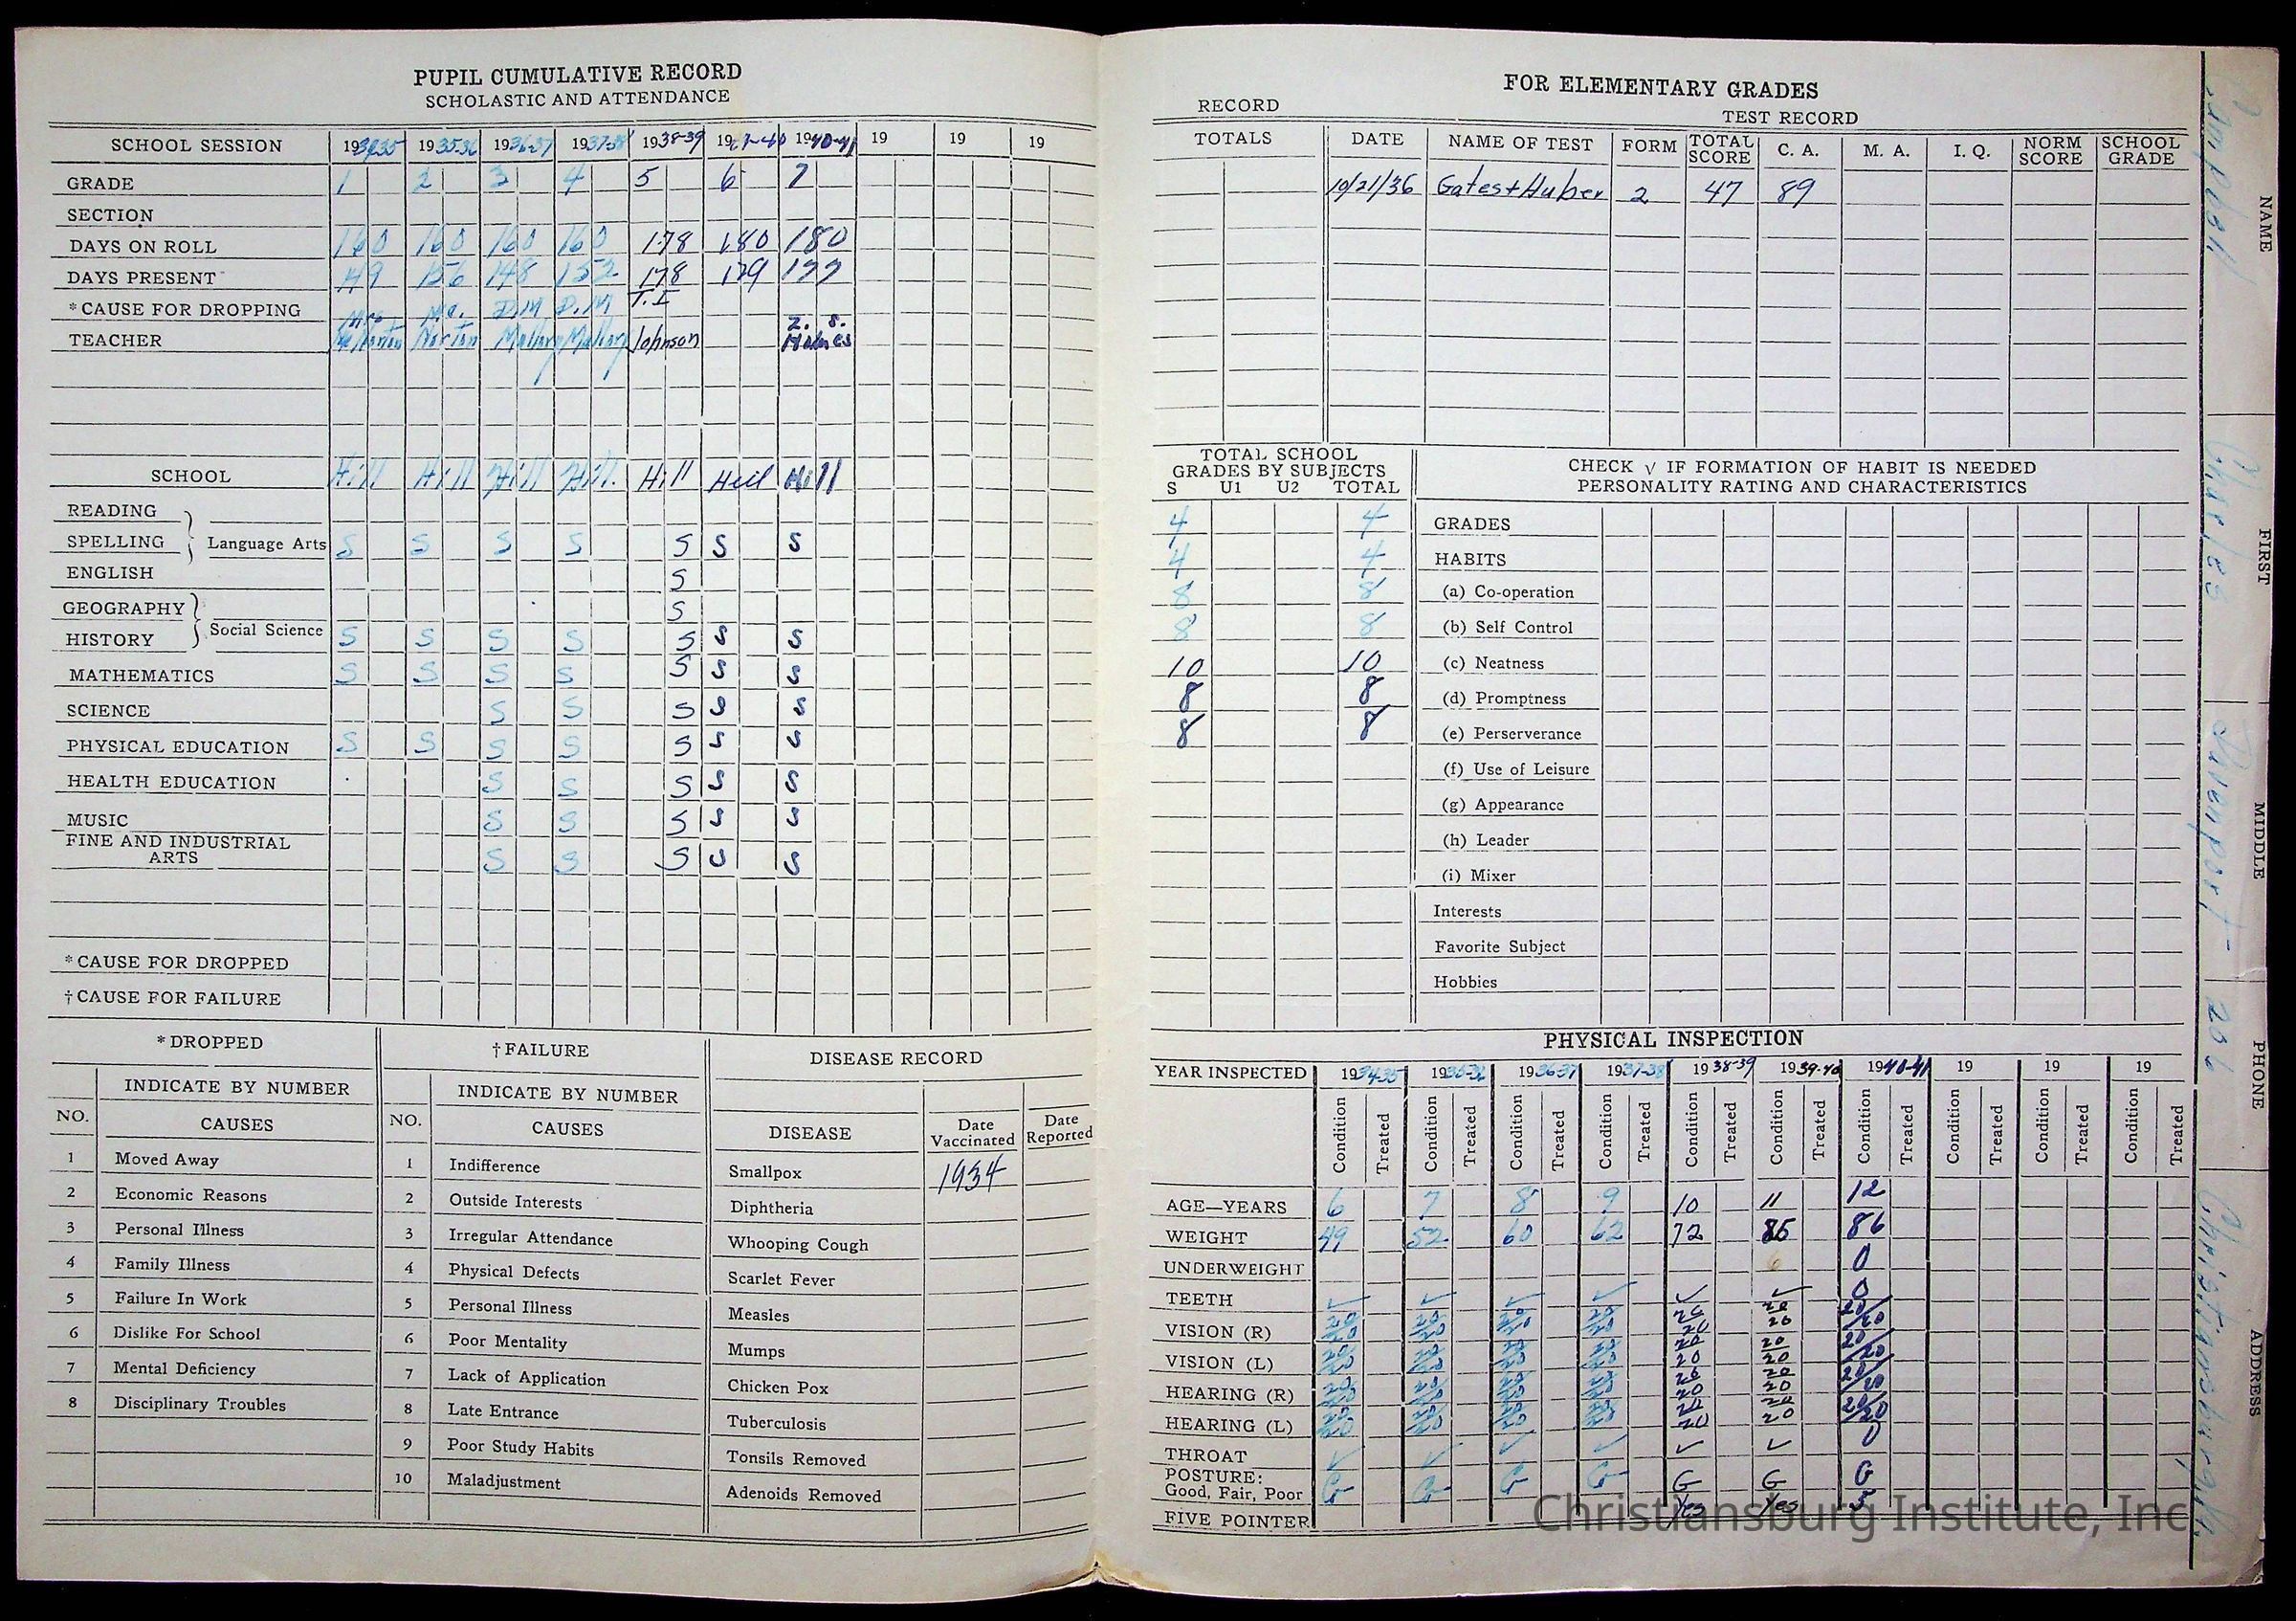 PUPIL CUMULATIVE RECORD
SCHOLASTIC AND ATTENDANCE
SCHOOL SESSION 1934-35 1935-36 1936-37 1937-38 1938-39 19 -40 1940-41 19 19 19
GRADE 1 2 3 4 5 6 7
SECTION
DAYS ON ROLL 160 160 160 160 178 180 180
DAYS PRESENT 149 156 148 152 178 179 177
*CAUSE FOR DROPPING
Mrs. D.M D.M T.I Z. S.
TEACHER Norton Mallory Mallory Johnson Holmes
SCHOOL Hill Hill Hill Hill. Hill Hill Hill
READING
SPELLING Language Arts S S S S S S S
ENGLISH S
GEOGRAPHY S
HISTORY Social Science S S S S S S S
MATHEMATICS S S S S S S S
SCIENCE S S S S S
PHYSICAL EDUCATION S S S S S S S
HEALTH EDUCATION S S S S S
MUSIC S S S S S
FINE AND INDUSTRIAL
ARTS S S S S S
*CAUSE FOR DROPPED
†CAUSE FOR FAILURE
*DROPPED
INDICATE BY NUMBER
NO. CAUSES
1 Moved Away
2 Economic Reasons
3 Personal Illness
4 Family Illness
5 Failure In Work
6 Dislike For School
7 Mental Deficiency
8 Disciplinary Troubles
†FAILURE
INDICATE BY NUMBER
NO. CAUSES
1 Indifference
2 Outside Interests
3 Irregular Attendance
4 Physical Defects
5 Personal Illness
6 Poor Mentality
7 Lack of Application
8 Late Entrance
9 Poor Study Habits
10 Maladjustment
DISEASE RECORD
DISEASE Date Vaccinated Date Reported
Smallpox 1934
Diphtheria
Whooping Cough
Scarlet Fever
Measles
Mumps
Chicken Pox
Tuberculosis
Tonsils Removed
Adenoids Removed
FOR ELEMENTARY GRADES
RECORD
TEST RECORD
TOTALS DATE NAME OF TEST FORM TOTAL SCORE C. A. M. A. I. Q. NORM SCORE SCHOOL GRADE
10/21/36 Gates+Huber 2 47 89
TOTAL SCHOOL
GRADES BY SUBJECTS
S U1 U2 TOTAL
4 4
4 4
8 8
8 8
10 10
8 8
8 8
CHECK √ IF FORMATION OF HABIT IS NEEDED
PERSONALITY RATING AND CHARACTERISTICS
GRADES
HABITS
(a) Co-operation
(b) Self Control
(c) Neatness
(d) Promptness
(e) Perserverance
(f) Use of Leisure
(g) Appearance
(h) Leader
(i) Mixer
Interests
Favorite Subject
Hobbies
PHYSICAL INSPECTION
YEAR INSPECTED 1934-35 1935-36 1936-37 1937-38 1938-39 1939-40 1940-41 19 19 19
Condition Treated Condition Treated Condition Treated Condition Treated Condition Treated Condition Treated Condition Treated Condition Treated Condition Treated Condition Treated
AGE—YEARS 6 7 8 9 10 11 12
WEIGHT 49 52 60 62 72 85 86
UNDERWEIGHT 0
TEETH ✓ ✓ ✓ ✓ ✓ ✓ 0
VISION (R) 20/20 20/20 20/20 20/20 20/20 20/20 20/20
VISION (L) 20/20 20/20 20/20 20/20 20/20 20/20 20/20
HEARING (R) 20/20 20/20 20/20 20/20 20/20 20/20 20/20
HEARING (L) 20/20 20/20 20/20 20/20 20/20 20/20 20/20
THROAT ✓ ✓ ✓ ✓ ✓ ✓ 0
POSTURE:
Good, Fair, Poor G G G G G G G
FIVE POINTER Yes Yes 5
NAME FIRST MIDDLE PHONE ADDRESS
Campbell Charles Davenport 206 Christiansburg, Va.
Christiansburg Institute, Inc